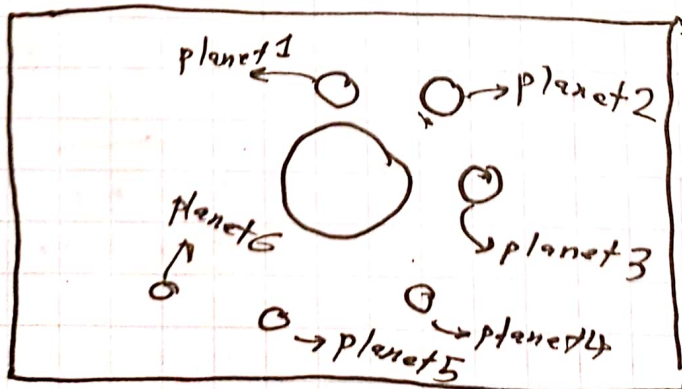 planet1
planet2
planet6
planet3
planet4
planet5